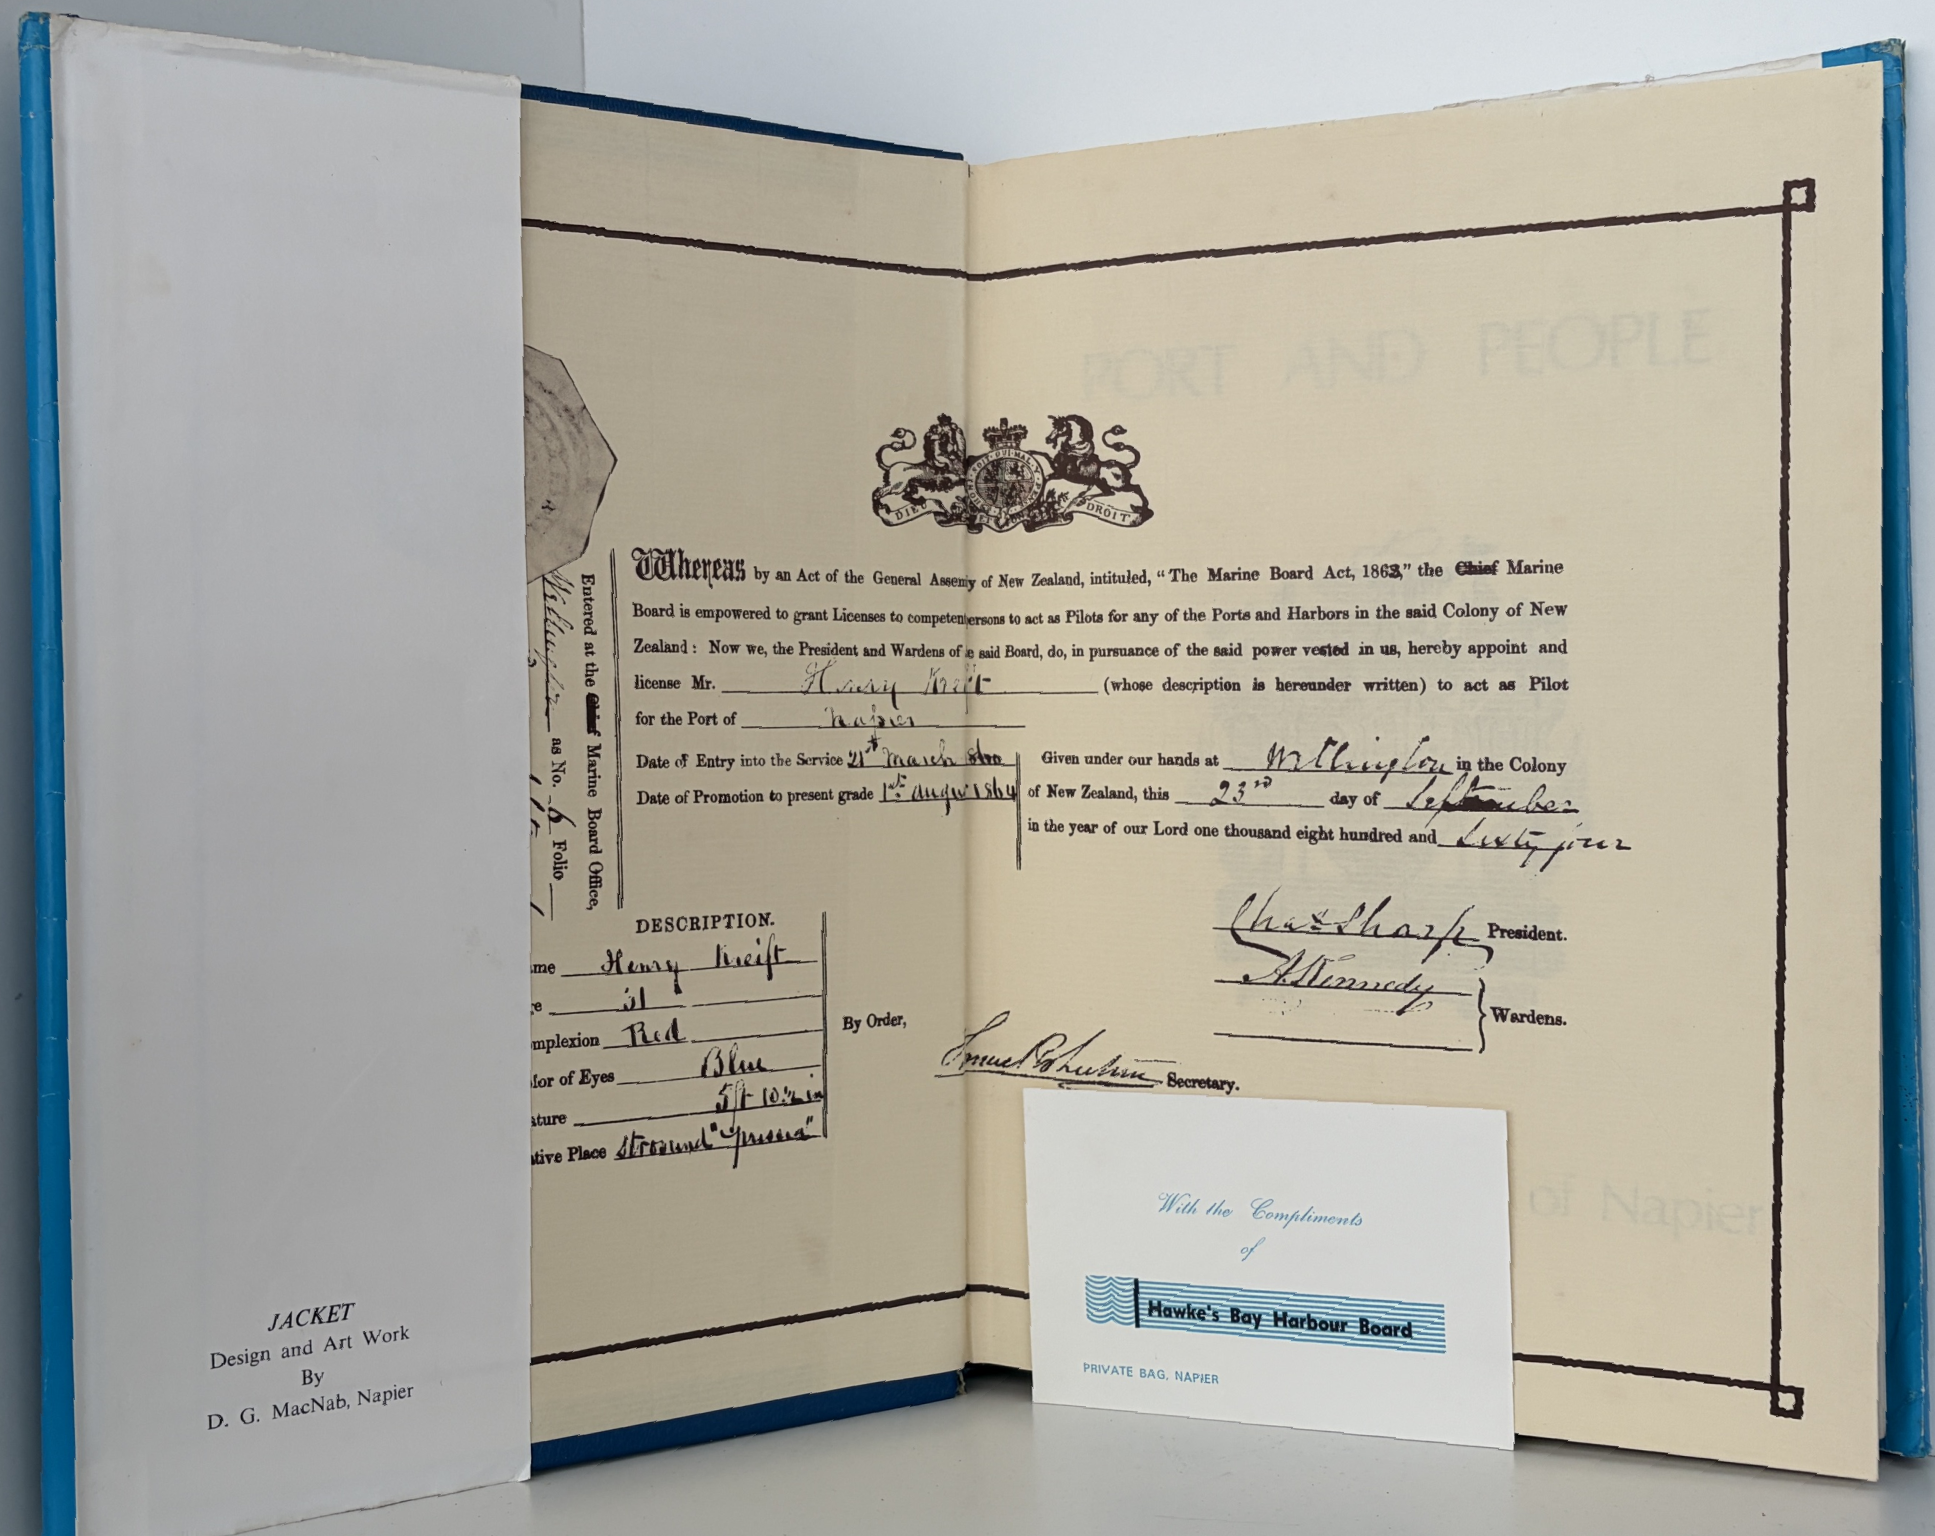 JACKET
Design and Art Work
By
D. G. MacNab, Napier
PORT AND PEOPLE
HONI SOIT QUI MAL Y PENSE
DIEU ET MON DROIT
Whereas by an Act of the General Assemy of New Zealand, intituled, “The Marine Board Act, 1863,” the Chief Marine
Board is empowered to grant Licenses to competen ersons to act as Pilots for any of the Ports and Harbors in the said Colony of New
Zealand: Now we, the President and Wardens of e said Board, do, in pursuance of the said power vested in us, hereby appoint and
license Mr. Henry Kreift (whose description is hereunder written) to act as Pilot
for the Port of Napier
Date of Entry into the Service 21st March
Date of Promotion to present grade 1st Augu 1864
Given under our hands at Wellington in the Colony
of New Zealand, this 23rd day of September
in the year of our Lord one thousand eight hundred and Sixty four
Entered at the Chief Marine Board Office,
Wellington as No. 6 Folio
DESCRIPTION.
me Henry Kreift
e 31
mplexion Red
lor of Eyes Blue
ature 5ft 10½ in
tive Place Stroasund "Prussia"
By Order,
Chas Sharp President.
A. Kennedy
Wardens.
Secretary.
of Napier
With the Compliments
of
Hawke's Bay Harbour Board
PRIVATE BAG, NAPIER